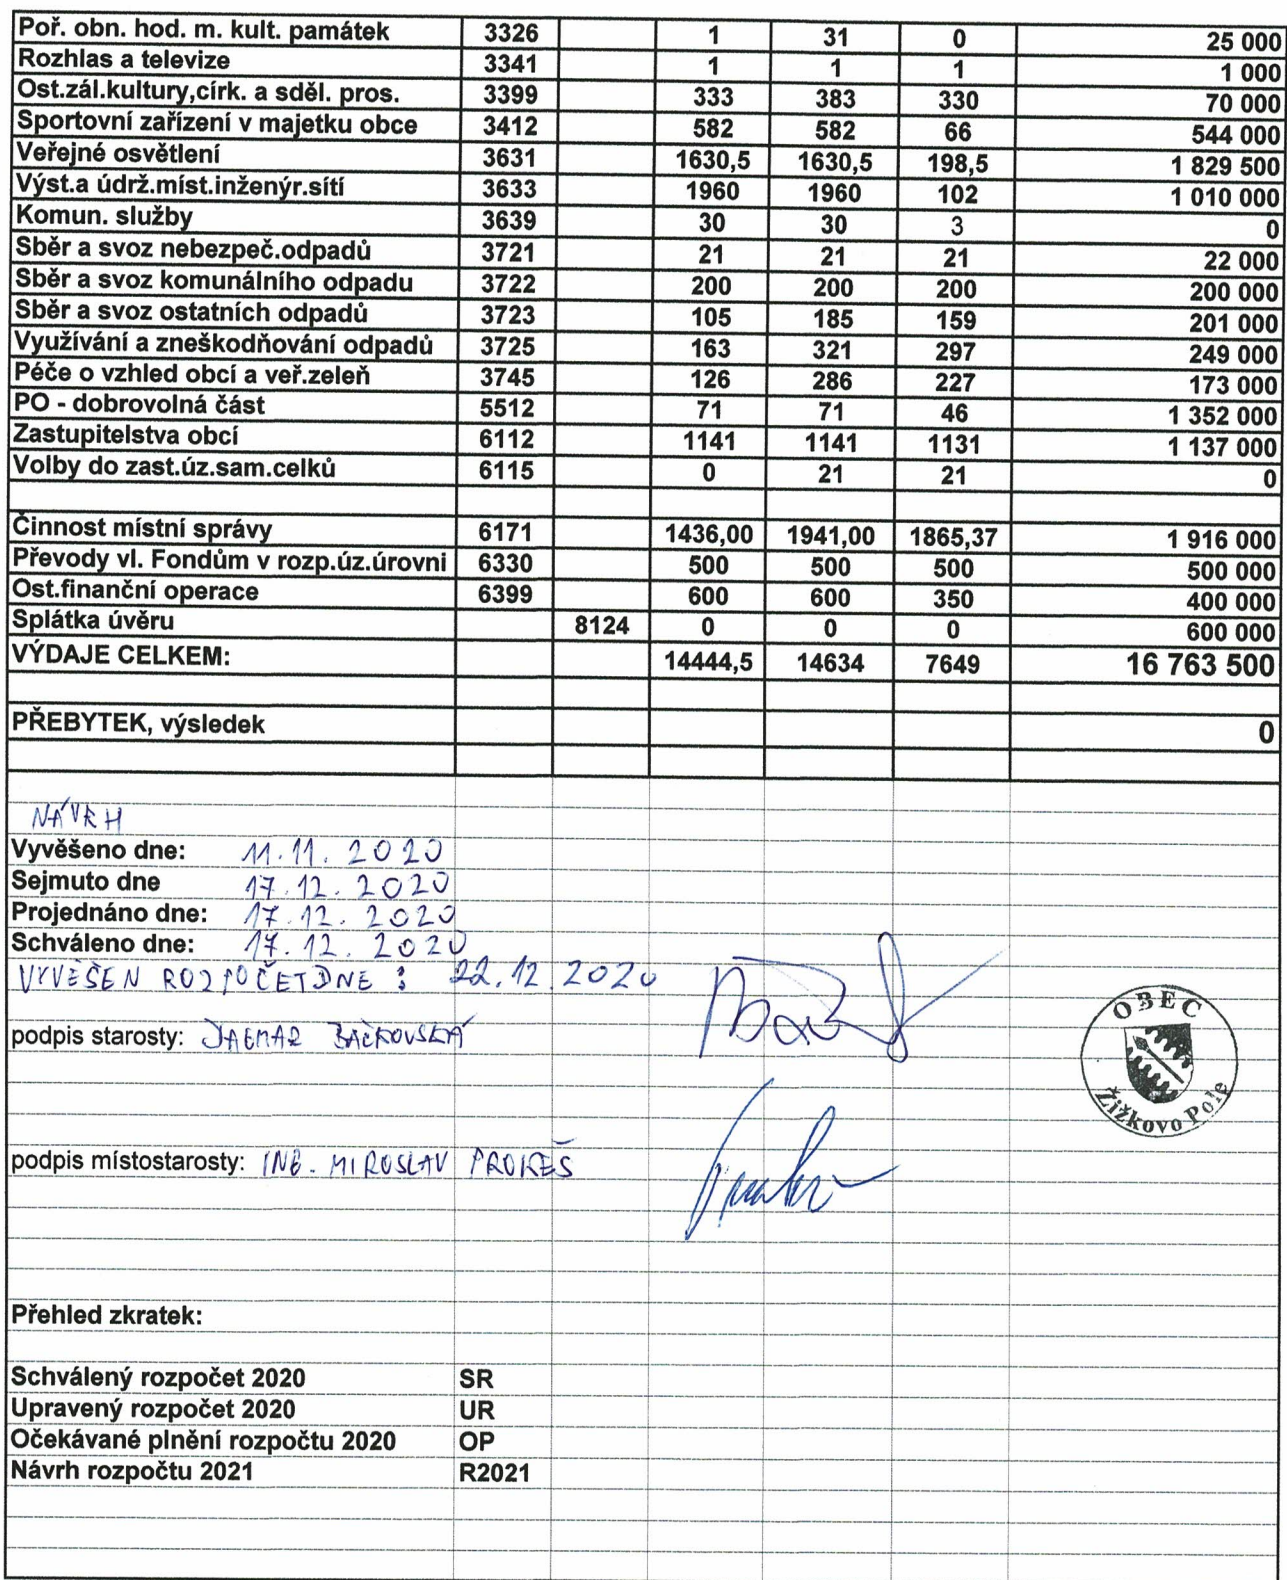 Poř. obn. hod. m. kult. památek 3326 1 31 0 25 000
Rozhlas a televize 3341 1 1 1 1 000
Ost.zál.kultury,círk. a sděl. pros. 3399 333 383 330 70 000
Sportovní zařízení v majetku obce 3412 582 582 66 544 000
Veřejné osvětlení 3631 1630,5 1630,5 198,5 1 829 500
Výst.a údrž.míst.inženýr.sítí 3633 1960 1960 102 1 010 000
Komun. služby 3639 30 30 3 0
Sběr a svoz nebezpeč.odpadů 3721 21 21 21 22 000
Sběr a svoz komunálního odpadu 3722 200 200 200 200 000
Sběr a svoz ostatních odpadů 3723 105 185 159 201 000
Využívání a zneškodňování odpadů 3725 163 321 297 249 000
Péče o vzhled obcí a veř.zeleň 3745 126 286 227 173 000
PO - dobrovolná část 5512 71 71 46 1 352 000
Zastupitelstva obcí 6112 1141 1141 1131 1 137 000
Volby do zast.úz.sam.celků 6115 0 21 21 0
Činnost místní správy 6171 1436,00 1941,00 1865,37 1 916 000
Převody vl. Fondům v rozp.úz.úrovni 6330 500 500 500 500 000
Ost.finanční operace 6399 600 600 350 400 000
Splátka úvěru 8124 0 0 0 600 000
VÝDAJE CELKEM: 14444,5 14634 7649 16 763 500
PŘEBYTEK, výsledek 0
NÁVRH
Vyvěšeno dne: 11.11. 2020
Sejmuto dne 17.12. 2020
Projednáno dne: 17.12. 2020
Schváleno dne: 17.12. 2020
VYVĚŠEN ROZPOČET DNE : 22.12.2020
podpis starosty: DAGMAR BAČKOVSKÁ
OBEC
Žižkovo Pole
podpis místostarosty: ING. MIROSLAV PROKEŠ
Přehled zkratek:
Schválený rozpočet 2020 SR
Upravený rozpočet 2020 UR
Očekávané plnění rozpočtu 2020 OP
Návrh rozpočtu 2021 R2021